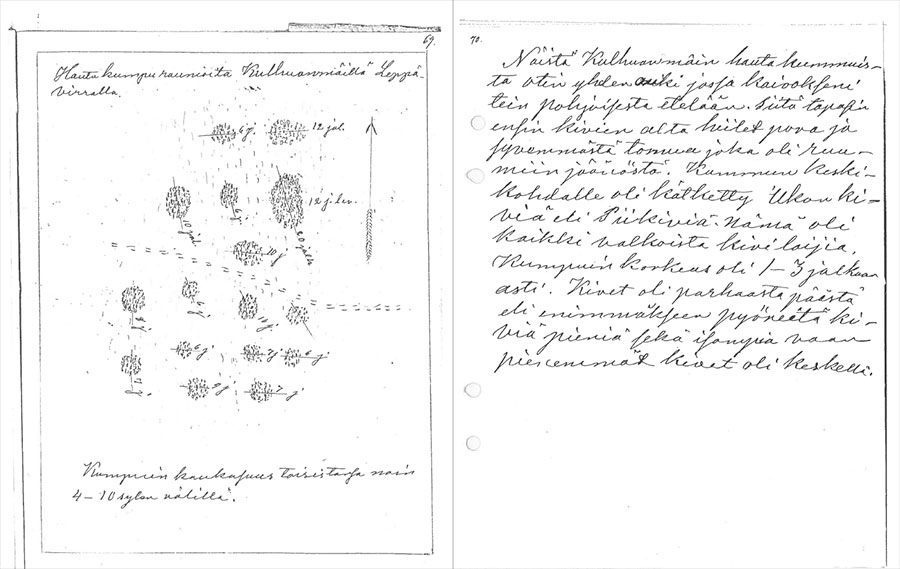 69.
Hauta kumpu raunioita Kulhuanmäillä Leppä-
virralla.
6 j.
12 jal.
10 jal
6 j
12 j. lev.
20 jalk
10 j
8 j
6 j
11 j
6 j
7 j
6 j
9 j
7 j
Kumpuin kaukaisuus toisistansa noin
4-10 sylen välillä.
70.
Näistä Kulhuanmäin hauta kummuis-
ta otin yhden auki jossa kaivokseni
tein pohjoisesta etelään. Siitä tapasin
ensin kivien alta hiilet pora ja
syvemmästä tomua joka oli ruu-
miin jäänöstä. Kummun keski-
kohdalle oli kätketty Ukon ki-
viä eli Piikiviä. Nämä oli
kaikki valkoista kivi laijia,
Kumpuin korkeus oli 1-3 jalkaan
asti. Kivet oli parhaasta päästä
eli enimmäkseen pyöreitä ki-
viä pieniä sekä isompia vaan
pienemmät kivet oli keskellä.